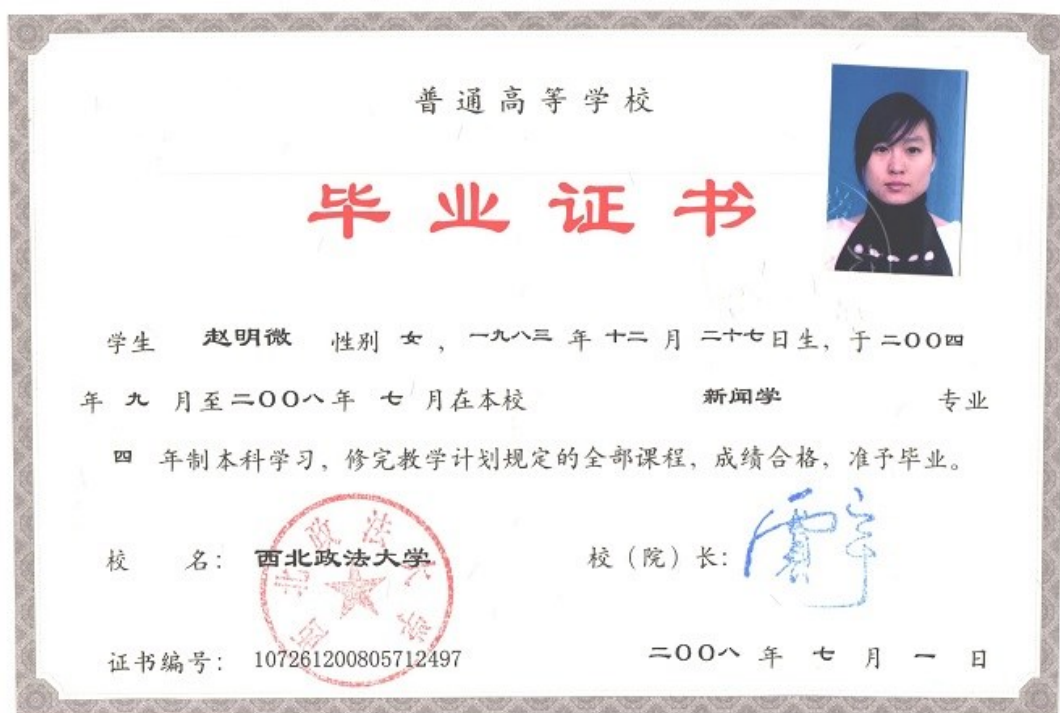 普通高等学校
毕业证书
学生 赵明微 性别 女，一九八三 年 十二 月 二十七日生，于 二〇〇四
年 九 月至二〇〇八年 七 月在本校 新闻学 专业
四 年制本科学习，修完教学计划规定的全部课程，成绩合格，准予毕业。
校 名：西北政法大学 校（院）长：賈宇
西北政法大学
证书编号：107261200805712497 二〇〇八 年 七 月 一 日